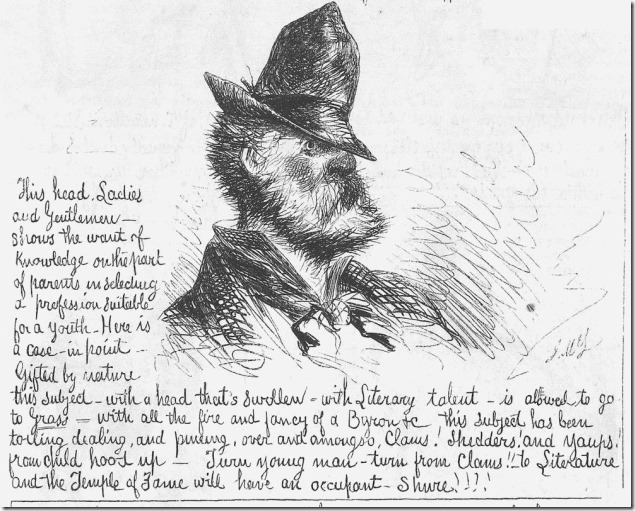 This head, Ladies
and Gentlemen—
shows the want of
Knowledge on the part
of parents in selecting
a profession suitable
for a youth—Here is
a case—in point—
Gifted by nature
this subject—with a head that's swollen—with Literary talent—is allowed to go
to Grass—with all the fire and fancy of a Byron &c this subject has been
toiling dealing, and puling, over and amongst, Clams! Shedders! and Yaups!
from child hood up— Turn young man—turn from Clams!! to Literature
and the Temple of Fame will have an occupant—Shure!!!!